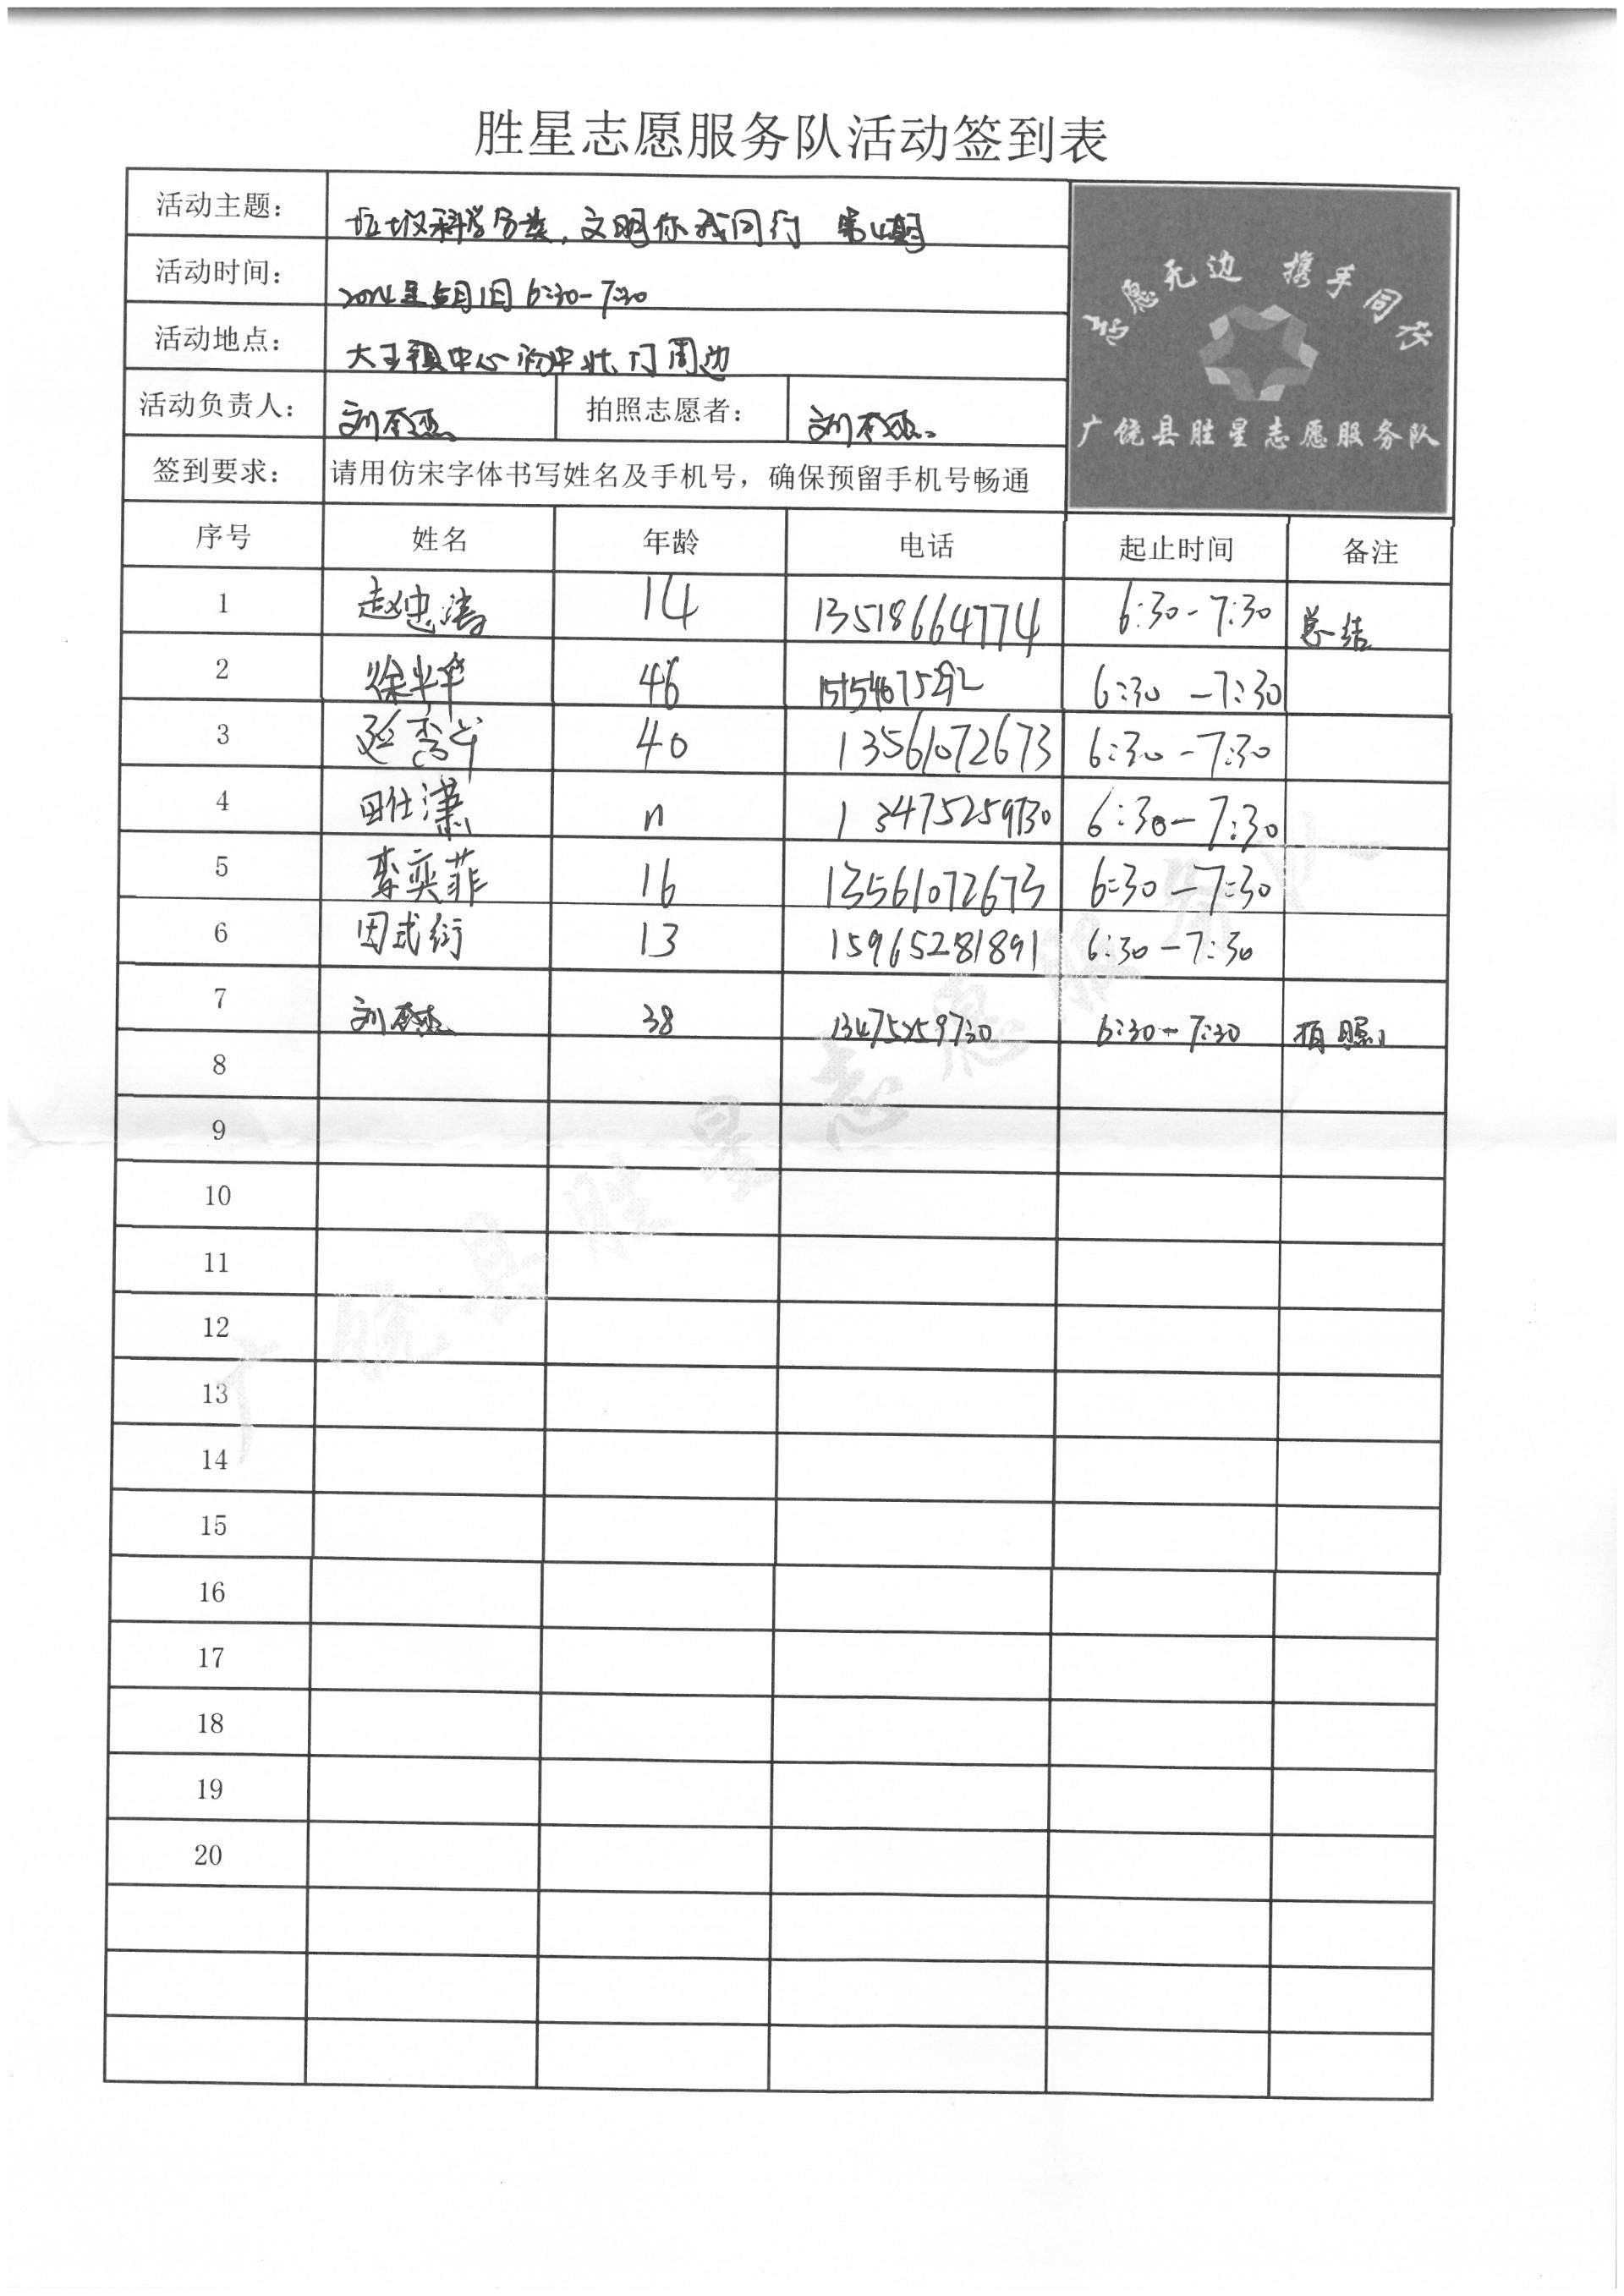 胜星志愿服务队活动签到表
活动主题: 垃圾科学分类,文明你我同行 第4期
志愿无边 携手同行
广饶县胜星志愿服务队
活动时间: 2024年5月1日 6:30-7:30
活动地点: 大王镇中心初中北门周边
活动负责人: 刘 拍照志愿者: 刘
签到要求: 请用仿宋字体书写姓名及手机号,确保预留手机号畅通
序号 姓名 年龄 电话 起止时间 备注
1 赵忠涛 14 13518664774 6:30-7:30 总结
2 徐 46 6:30-7:30
3 40 13561072673 6:30-7:30
4 田仕潇 13475259730 6:30-7:30
5 李奕菲 16 13561072673 6:30-7:30
6 因式衍 13 15965281891 6:30-7:30
7 刘 38 13475259730 6:30-7:30 拍照
8
9
10
11
12
13
14
15
16
17
18
19
20
广饶县胜星志愿服务队